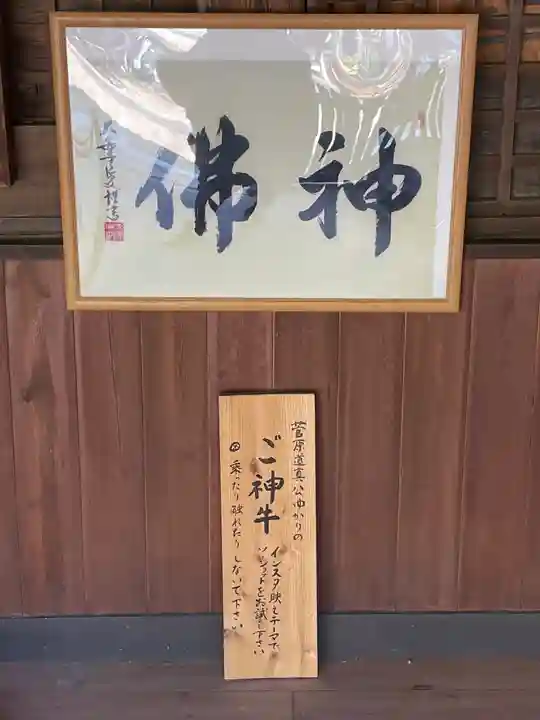 神佛
菅原道真公ゆかりの
ご神牛
インスタ映えテーマで
ソットお試し下さい
乗ったり触れたりしないで下さい